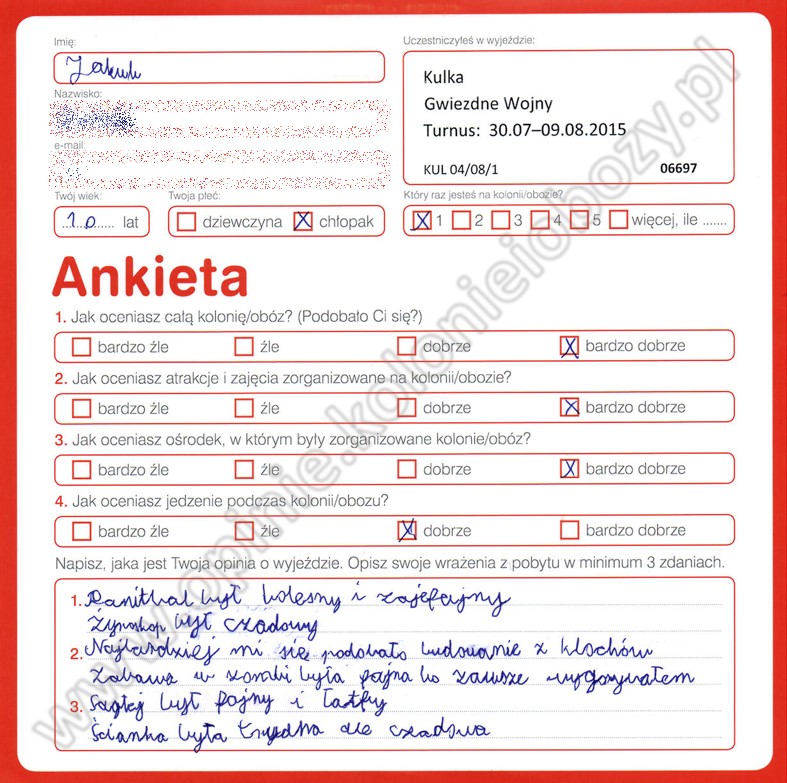 Imię:
Jakub
Uczestniczyłeś w wyjeździe:
Kulka
Gwiezdne Wojny
Turnus: 30.07–09.08.2015
KUL 04/08/1 06697
Nazwisko:
e-mail:
Twój wiek:
10 lat
Twoja płeć:
dziewczyna X chłopak
Który raz jesteś na kolonii/obozie?
X 1 2 3 4 5 więcej, ile .......
Ankieta
1. Jak oceniasz całą kolonię/obóz? (Podobało Ci się?)
bardzo źle źle dobrze X bardzo dobrze
2. Jak oceniasz atrakcje i zajęcia zorganizowane na kolonii/obozie?
bardzo źle źle dobrze X bardzo dobrze
3. Jak oceniasz ośrodek, w którym były zorganizowane kolonie/obóz?
bardzo źle źle dobrze X bardzo dobrze
4. Jak oceniasz jedzenie podczas kolonii/obozu?
bardzo źle źle X dobrze bardzo dobrze
Napisz, jaka jest Twoja opinia o wyjeździe. Opisz swoje wrażenia z pobytu w minimum 3 zdaniach.
1. był bolesny i zajefajny
Żyroskop był czadowy
2. Najbardziej mi się podobało budowanie z klocków
Zabawa w była fajna bo zawsze wygrywałem
3. był fajny i łatfy
Ścianka była trudna ale czadowa
www.opinie.kolonieiobozy.pl